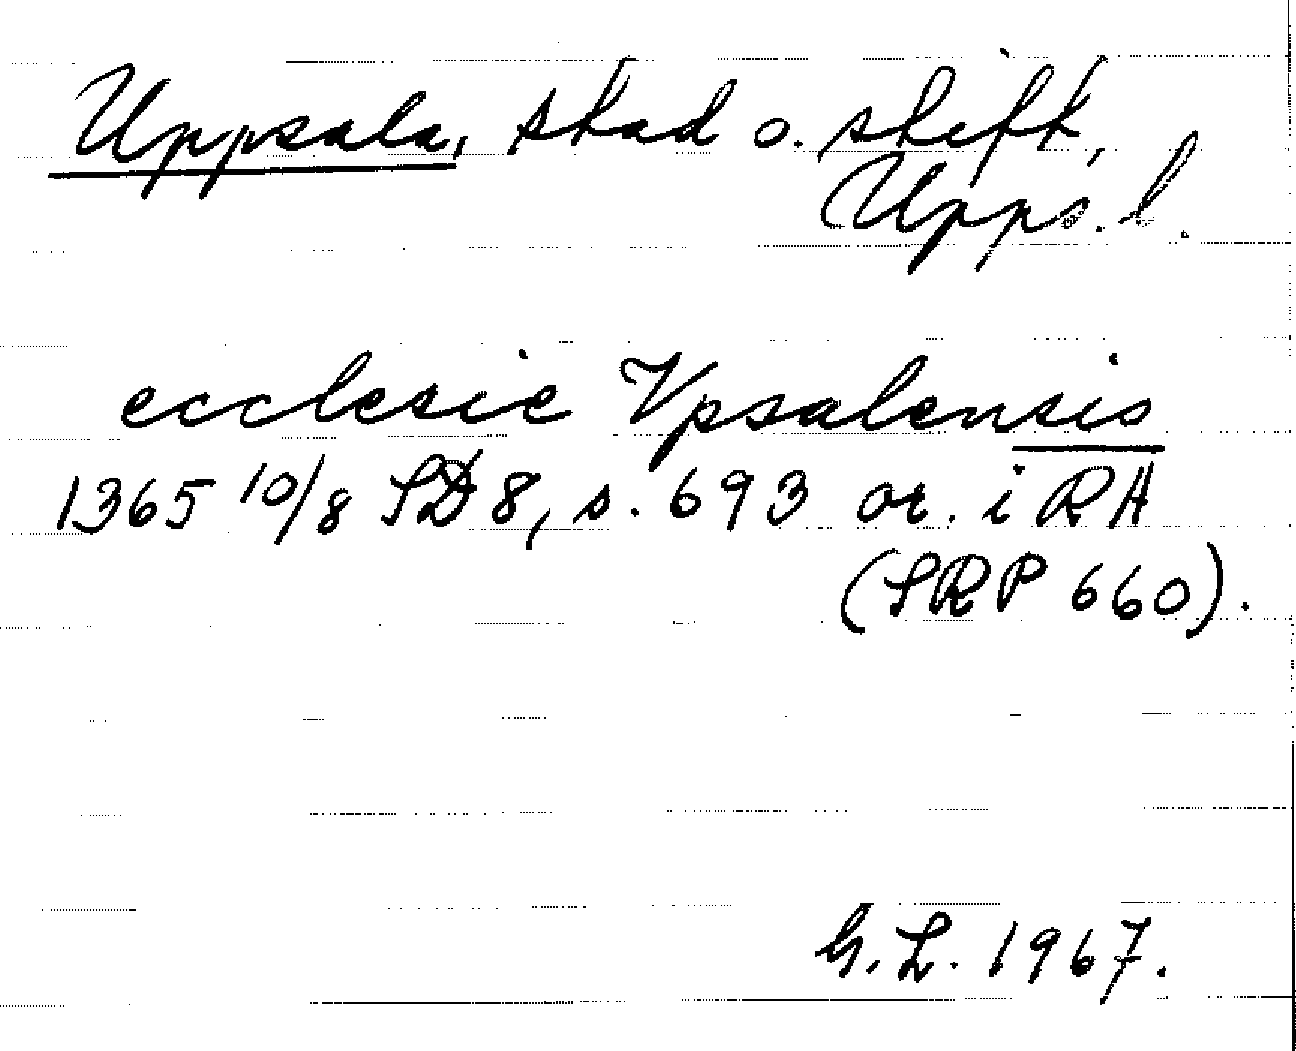 Uppsala, stad o. stift,
Upps. l.
ecclesie Vpsalensis
1365 10/8 SD 8, s. 693 or. i RA
(SRP 660).
G. L. 1967.